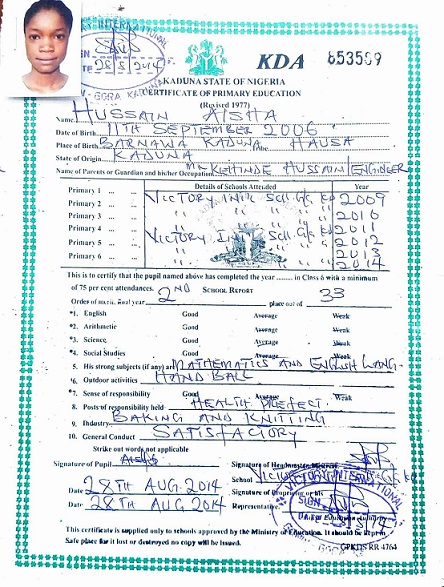 KDA 853509
KADUNA STATE OF NIGERIA
CERTIFICATE OF PRIMARY EDUCATION
(Revised 1977)
Name HUSSAIN AISHA
Date of Birth 11TH SEPTEMBER 2006
Place of Birth BARNAWA KADUNA HAUSA
State of Origin KADUNA
Name of Parents or Guardian and his/her Occupation MR KEHINDE HUSSAIN / ENGINEER
Details of Schools Attended Year
Primary 1 VICTORY INT'L SCH 2009
Primary 2 " " " 2010
Primary 3 " " " 2011
Primary 4 VICTORY SCH 2012
Primary 5 " " " 2013
Primary 6 " " 2014
This is to certify that the pupil named above has completed the year ........ in Class 6 with a minimum
of 75 per cent attendances. SCHOOL REPORT
Order of merit, final year 2ND place out of 33
*1. English Good Average Weak
*2. Arithmetic Good Average Weak
*3. Science Good Average Weak
*4. Social Studies Good Average Weak
5. His strong subjects (if any) are MATHEMATICS AND ENGLISH LANG-
*6. Outdoor activities HAND BALL
*7. Sense of responsibility Good Average Weak
8. Posts of responsibility held HEALTH PREFECT
9. Industry BAKING AND KNITTING
10. General Conduct SATISFACTORY
Strike out words not applicable
Signature of Pupil Signature of Headmaster
School
Date 28TH AUG. 2014 Signature of Proprietor or his
Date 28TH AUG. 2014 Representative
This certificate is supplied only to schools approved by the Ministry of Education. It should be kept in
Safe place for it lost or destroyed no copy will be issued. GPKDS RR 4764